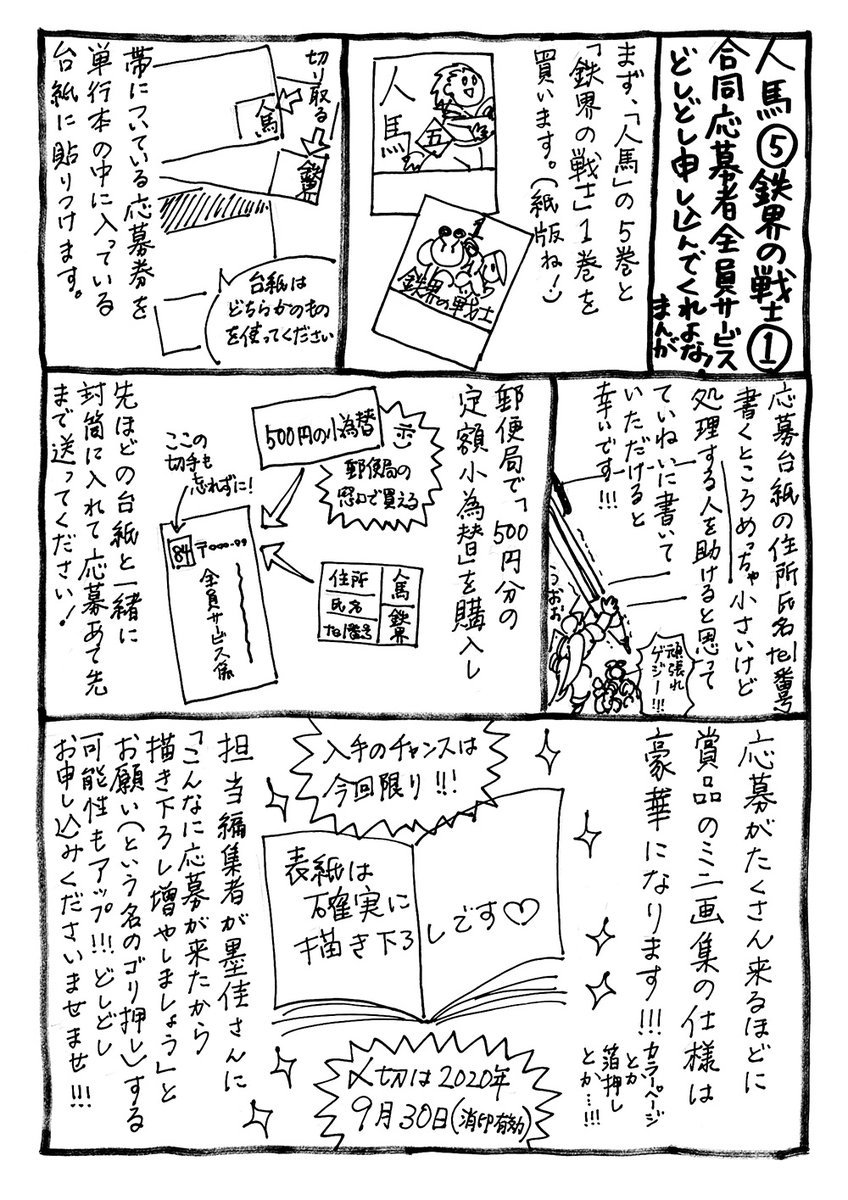 人馬⑤鉄界の戦士①
合同応募者全員サービス
どしどし申し込んでくれよなっ
まんが
まず、「人馬」の5巻と
「鉄界の戦士」1巻を
買います。(紙版ね!)
人馬
五
1
鉄界の戦士
切り取る
人馬
鉄界
帯についている応募券を
単行本の中に入っている
台紙に貼りつけます。
台紙は
どちらかのもの
を使ってください
応募台紙の住所氏名tel番号
書くところめっちゃ小さいけど
処理する人を助けると思って
ていねいに書いて
いただけると
幸いです!!!
うおぉ
頑張れ
ゲジー!!!
郵便局で「500円分の
定額小為替」を購入し
500円の小為替
郵便局の
窓口で買える
ここの
切手も
忘れずに!
84
〒000-00
全員サービス係
住所
氏名
tel番号
人馬
鉄界
先ほどの台紙と一緒に
封筒に入れて応募あて先
まで送ってください!
応募がたくさん来るほどに
賞品のミニ画集の仕様は
豪華になります!!!
カラーページ
とか
箔押し
とか…!!!
入手のチャンスは
今回限り!!!
表紙は
確実に
描き下ろしです♡
〆切は2020年
9月30日(消印有効)
担当編集者が墨佳さんに
「こんなに応募が来たから
描き下ろし増やしましょう」と
お願い(という名のゴリ押し)する
可能性もアップ!!!どしどし
お申し込みくださいませませ!!!